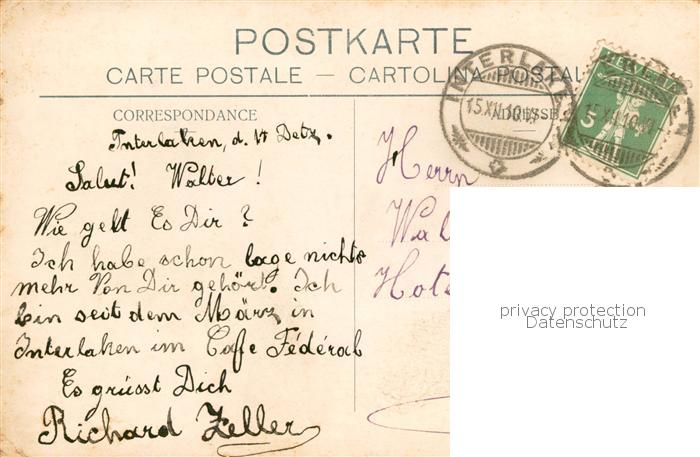 POSTKARTE
CARTE POSTALE — CARTOLINA POSTAL
CORRESPONDANCE
ADRESSE
INTERLAKEN
15.XII.10.
HELVETIA
5
15.XII.10.
Interlaken, d. 14 Detz.
Salut! Walter!
Wie gelt Es Dir?
Ich habe schon lage nichts
mehr Von Dir gehört. Ich
bin seit dem März in
Interlaken im Cafe Fédéral
Es grüsst Dich
Richard Zeller
Herrn
Wal
Hote
privacy protection
Datenschutz